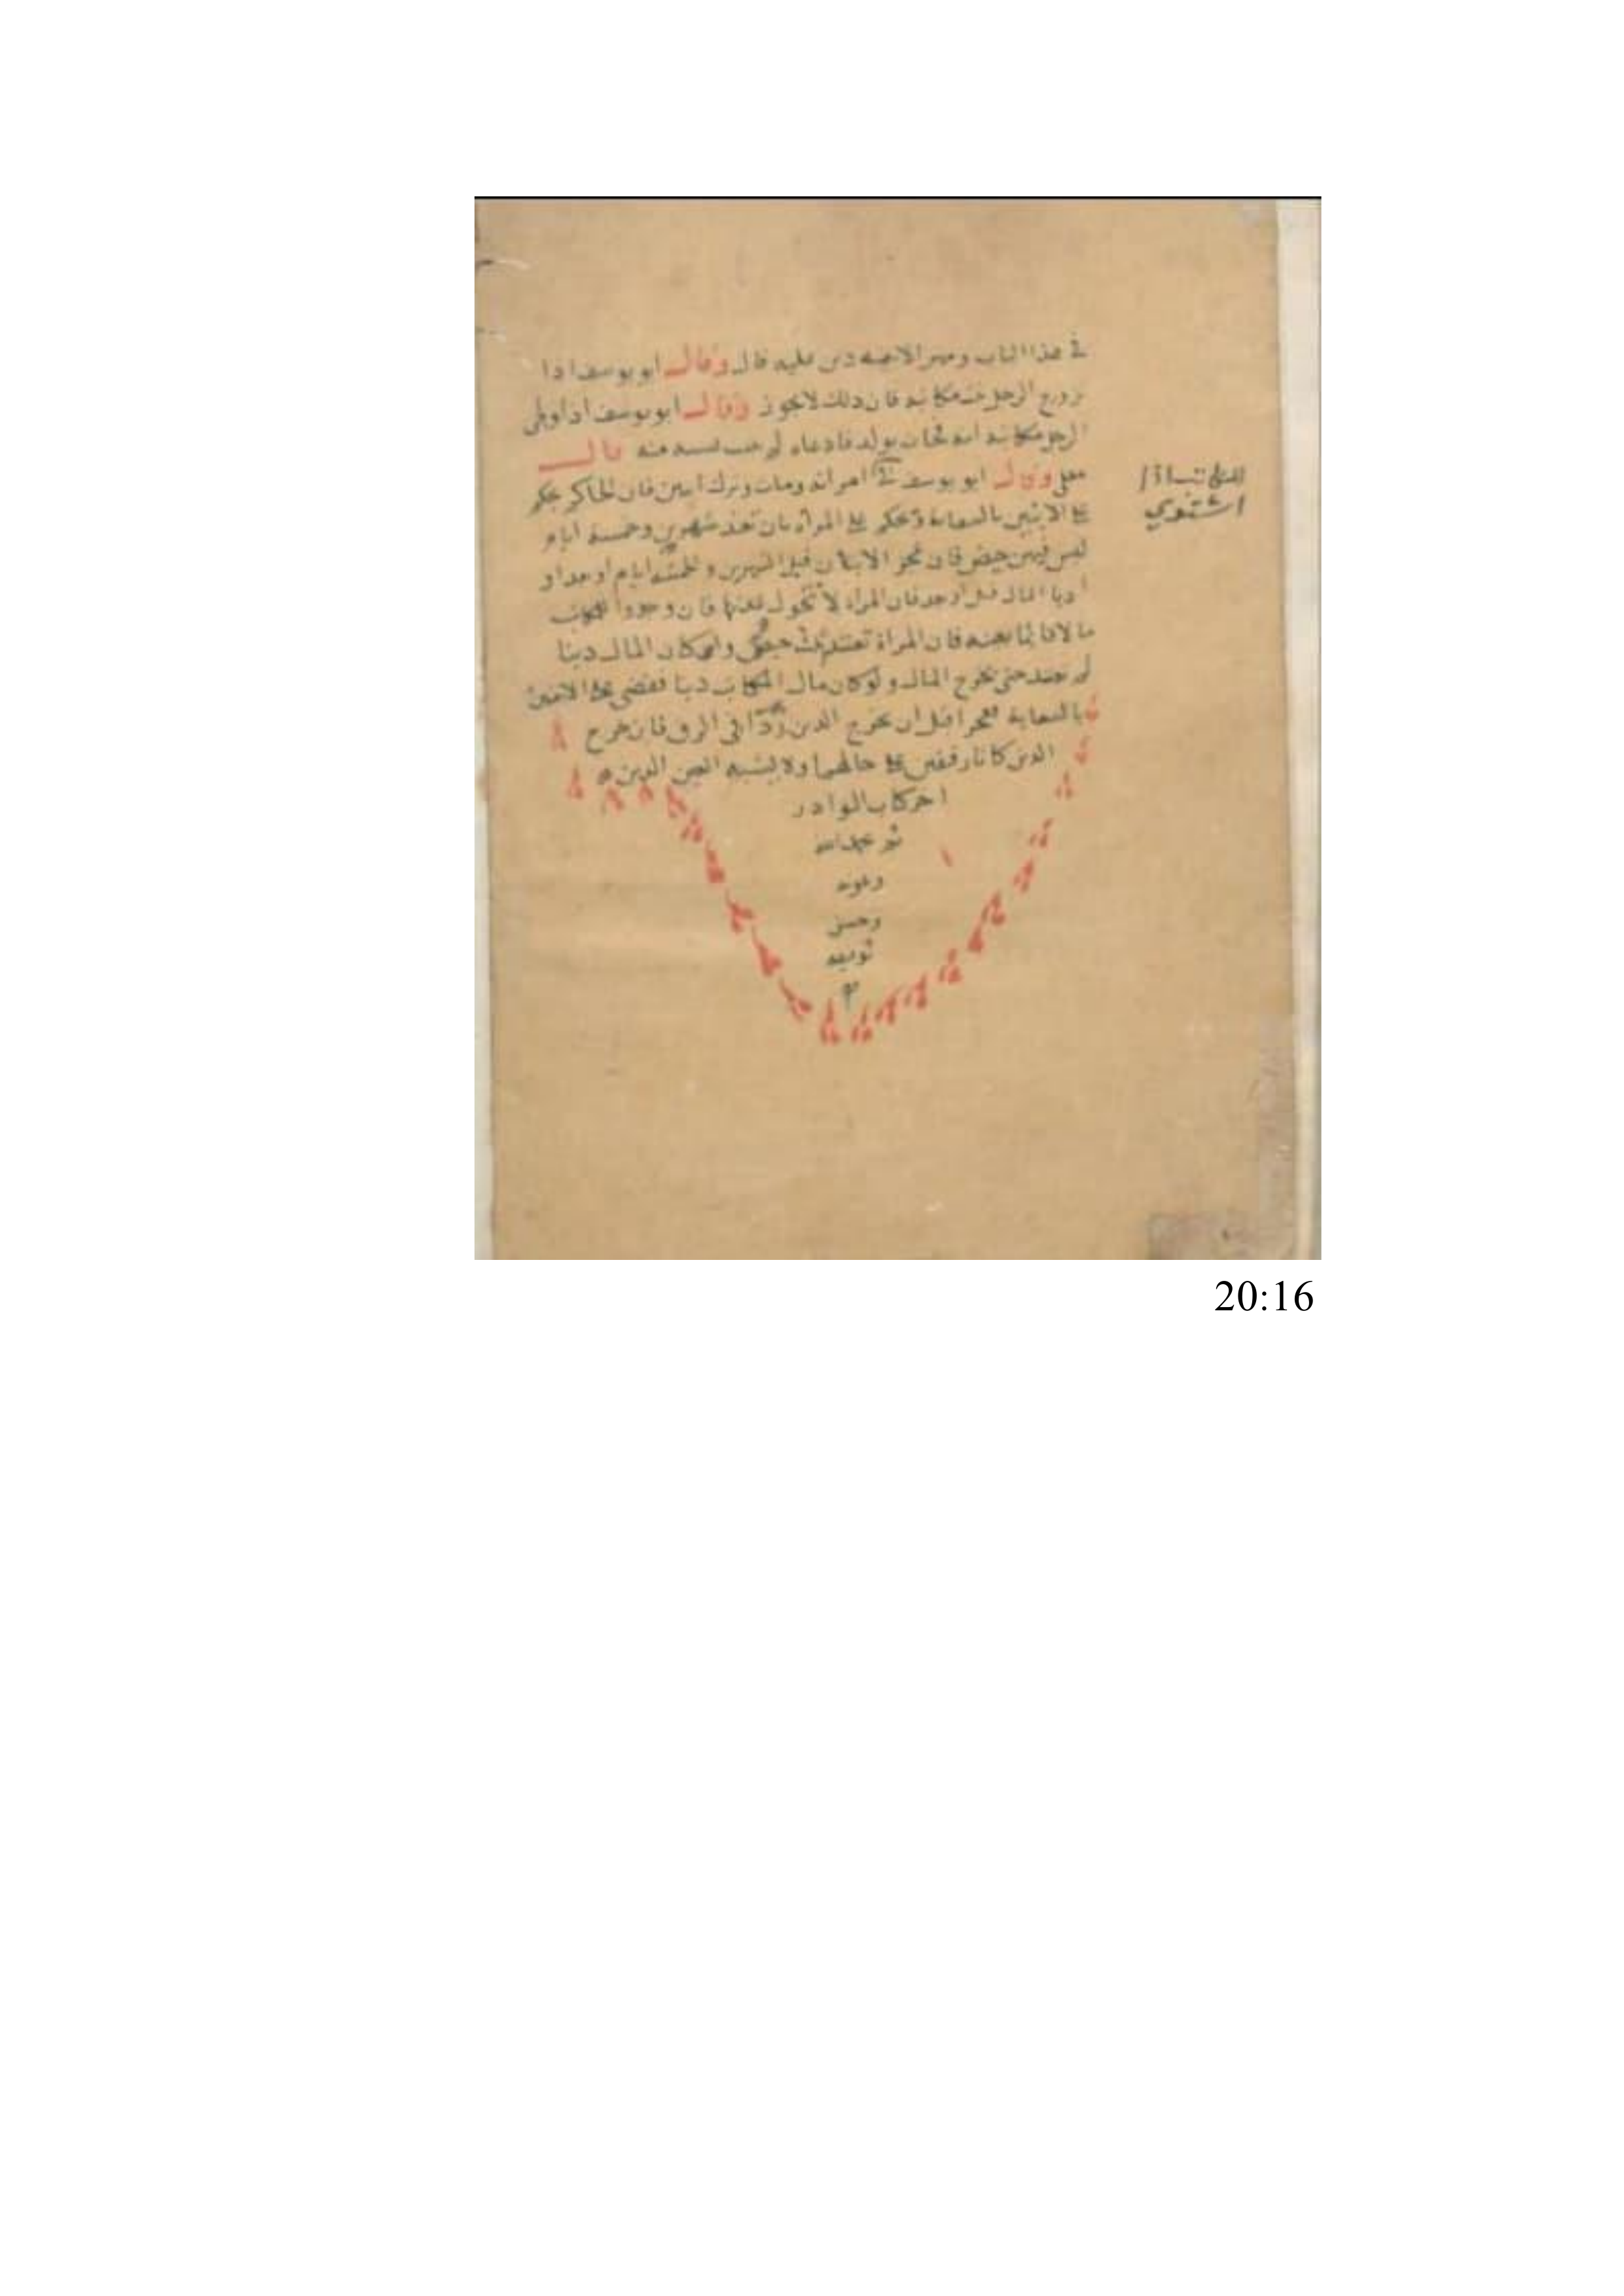 في هذا الباب ومهر الامة دين عليه قال وقال ابو يوسف اذا
تزوج الرجل مكاتبه فان ذلك لا يجوز وقال ابو يوسف اذا وطى
الرجل مكاتبة ابنه فجات بولد فادعاه لم يثبت نسبه منه قال
معلى وقال ابو يوسف في امراته ومات وترك ابنين فان الحاكم يحكم
على الابنين بالسعاية ويحكم على المراة بان تعتد شهرين وخمسة ايام
ليس فيهن حيض فان عجز الابنان قبل الشهرين والخمسة ايام او بعد او
اديا المال قبل او بعد فان المراة لا تحول عدتها فان وجدوا للمكاتب
مالا قائما بعينه فان المراة تعتد ثلث حيض وان كان المال دينا
لم تعتد حتى يخرج المال ولو كان مال المكاتب دينا فقضى على الابنين
بالسعاية فعجزا قبل ان يخرج الدين ردا في الرق فان خرج
الدين كانا رقيقين على حالهما ولا يشبه العين الدين
اخر كتاب النوادر
تم بحمد الله
وعونه
وحسن
توفيقه
م
20:16